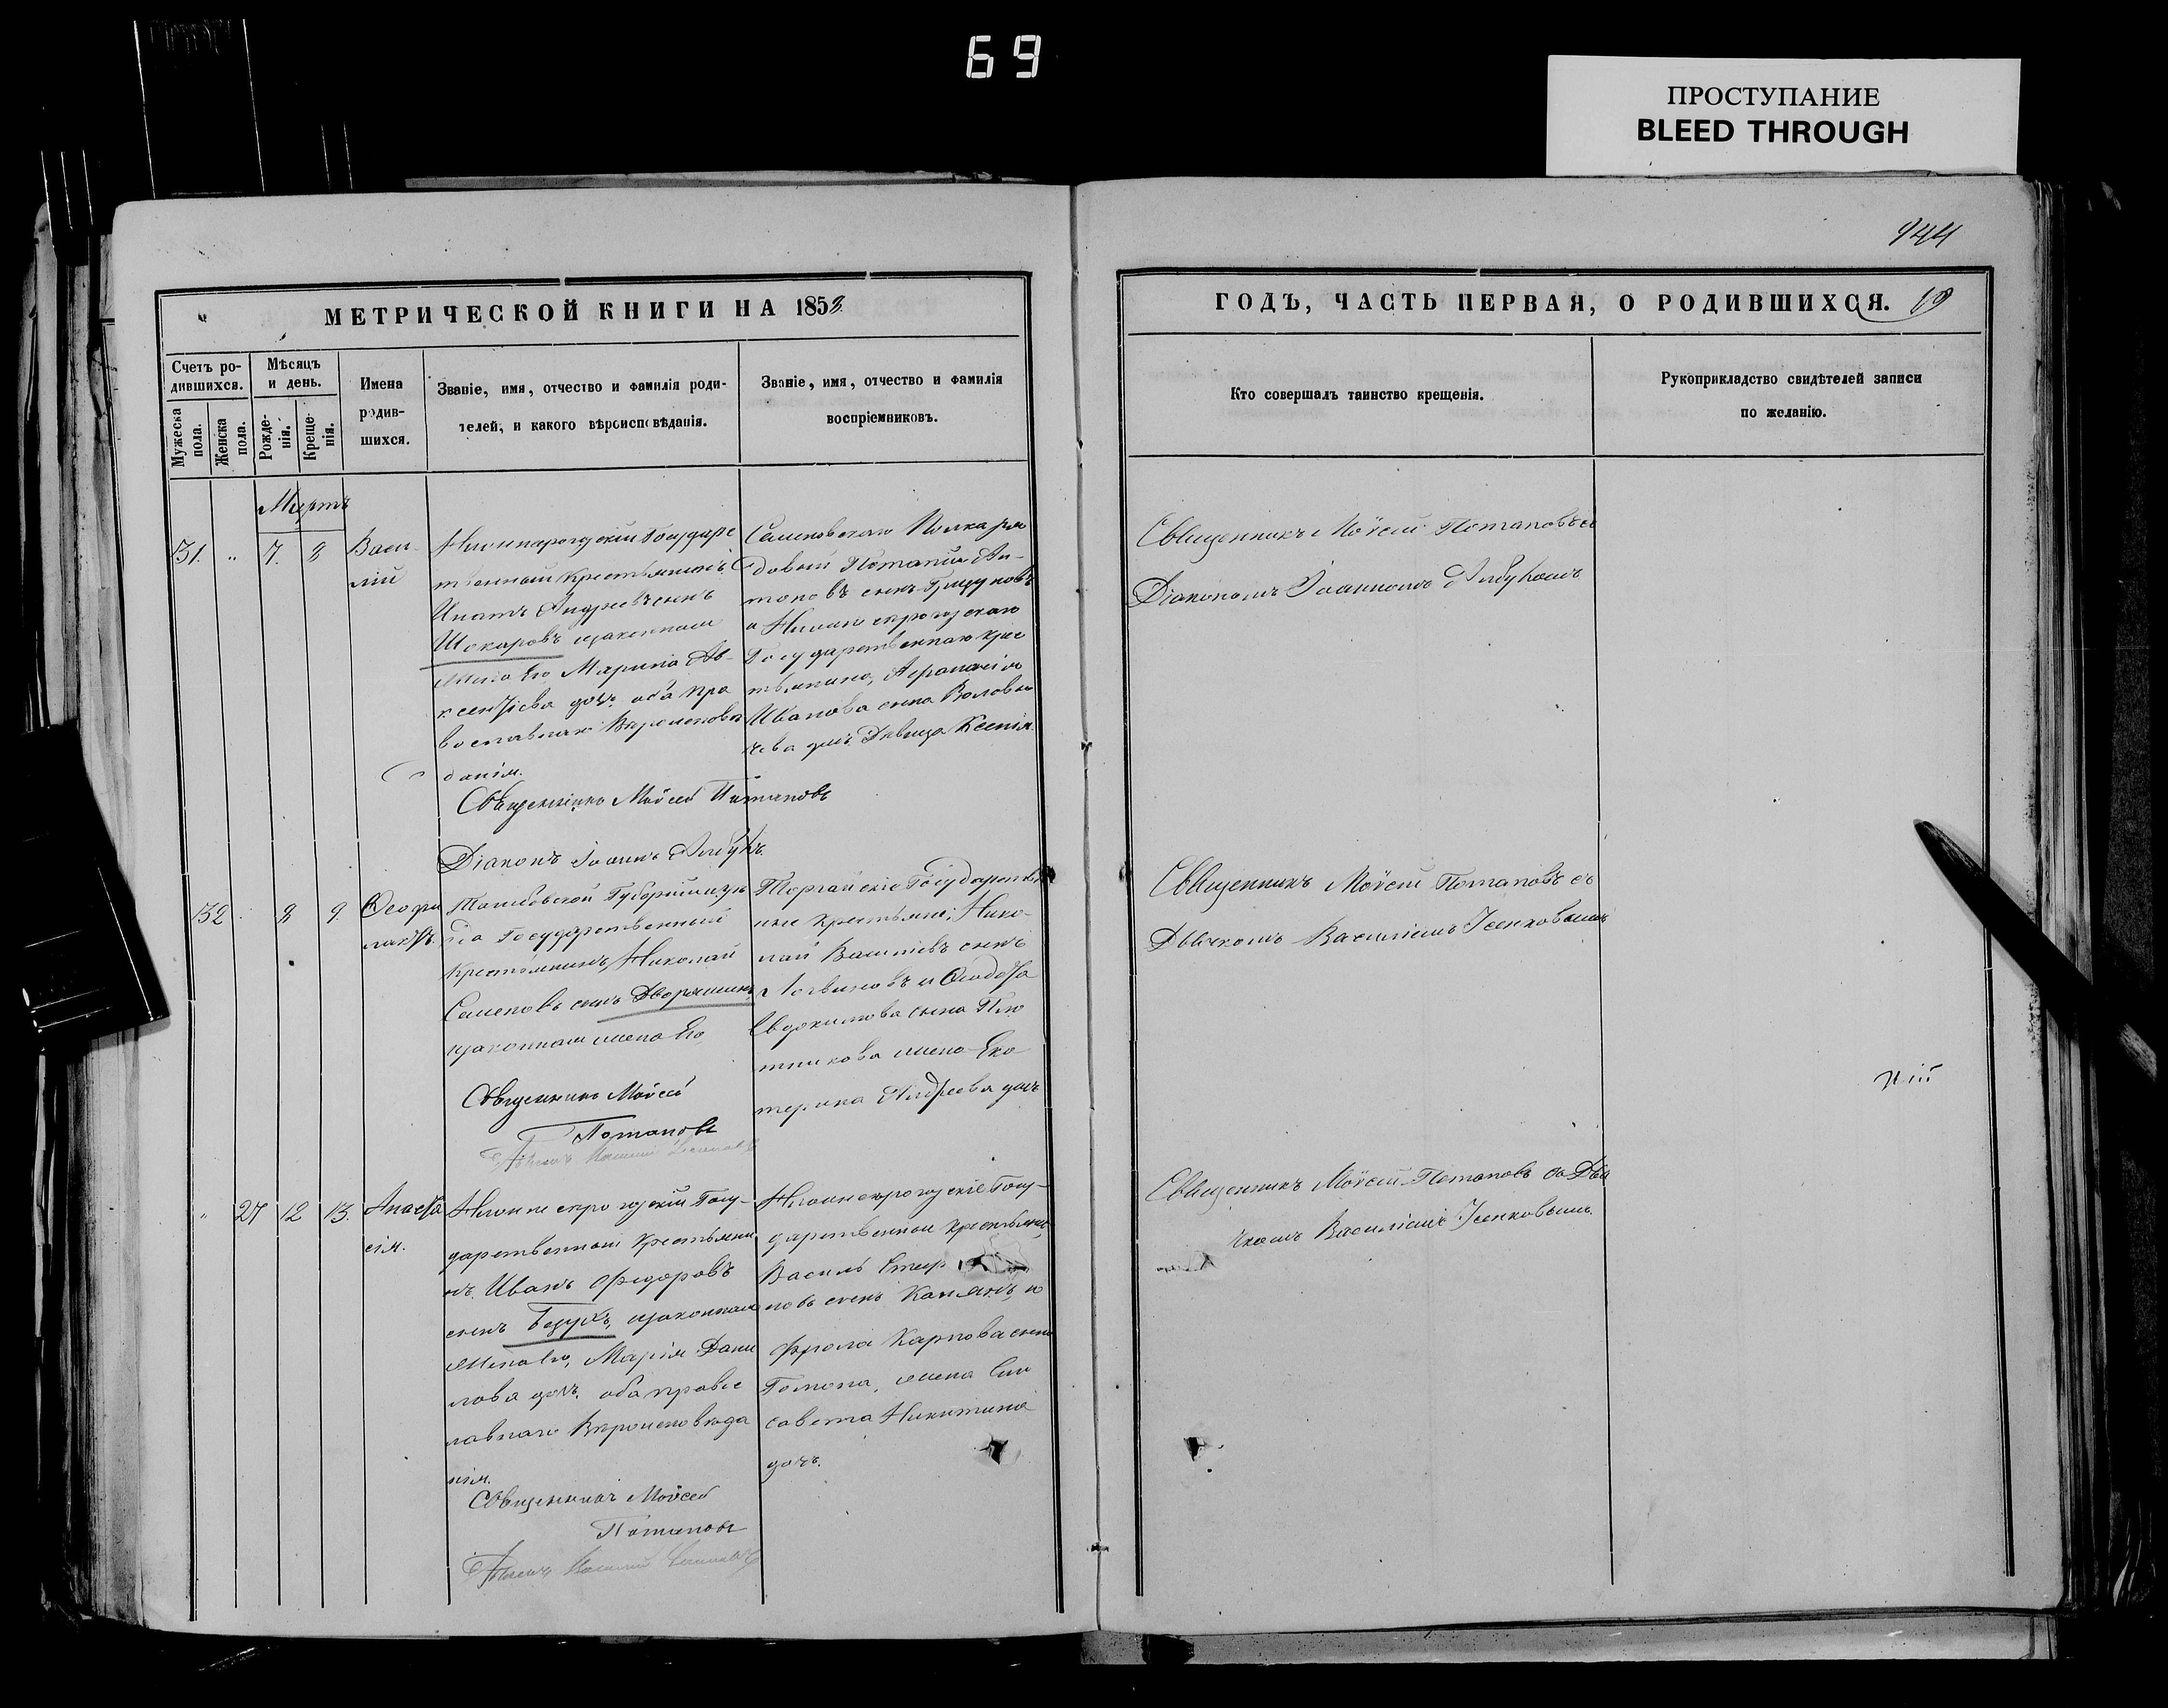 69
ПРОСТУПАНИЕ
BLEED THROUGH
144
МЕТРИЧЕСКОЙ КНИГИ НА 1858
ГОДЪ, ЧАСТЬ ПЕРВАЯ, О РОДИВШИХСЯ.
Счетъ ро-
дившихся.
Мужеска
пола.
Женска
пола.
Мѣсяцъ
и день.
Рожде-
нія.
Креще-
нія.
Имена
родив-
шихся.
Званіе, имя, отчество и фамилія роди-
телей, и какого вѣроисповѣданія.
Званіе, имя, отчество и фамилія
воспріемниковъ.
Кто совершалъ таинство крещенія.
Рукоприкладство свидѣтелей записи
по желанію.
Мартъ
31. " 7. 8
Васи-
лій
Государс
твенный Крестьянинъ
Ипатъ Андреевъ сынъ
Шокаровъ законная
жена Его Марина Ав-
ксентіева доч. оба пра
вославнаго Вѣроисповѣ
данія.
Священникъ Моѵсей Потаповъ
Діаконъ Іоаннъ
Семеновскаго Полка ря
довый Потапій Ан-
тоновъ сынъ
и
Государственнаго крес
тьянина, Афанасія
Иванова сына Волови
чева дочь Дѣвица Ксенія.
Священникъ Моѵсей Потаповъ съ
Діакономъ Іоанномъ
32 8 9.
Ѳеофи
лактъ.
Тамбовской Губерніи
Государственный
Крестьянинъ, Николай
Семеновъ сынъ Дворянинъ
законная жена Его
Священникъ Моѵсей
Потаповъ
Торгайскіе Государствен
ные крестьяне; Нико-
лай Васильевъ сынъ
Логвиновъ и Ѳеодота
Евдокимова сына Пло
тникова жена Ека
терина Андреева дочь
Священникъ Моѵсей Потаповъ съ
Дьячкомъ Василіемъ Исенковымъ
" 27 12 13.
Анаста
сія.
Госу-
дарственный Крестьяни
нъ, Иванъ Федоровъ
сынъ Безукъ, законная
жена Его, Марія Дани
лова доч. оба правос
лавнаго Вѣроисповѣда
нія.
Священникъ Моѵсей
Потаповъ
Госу-
дарственныи крестьяне,
Василь Спир
новъ сынъ и
Фрола Карпова сына
Гомона, жена Ели
савета Никитина
дочь.
Священникъ Моѵсей Потаповъ съ Дья
чкомъ Василіемъ Исенковымъ.